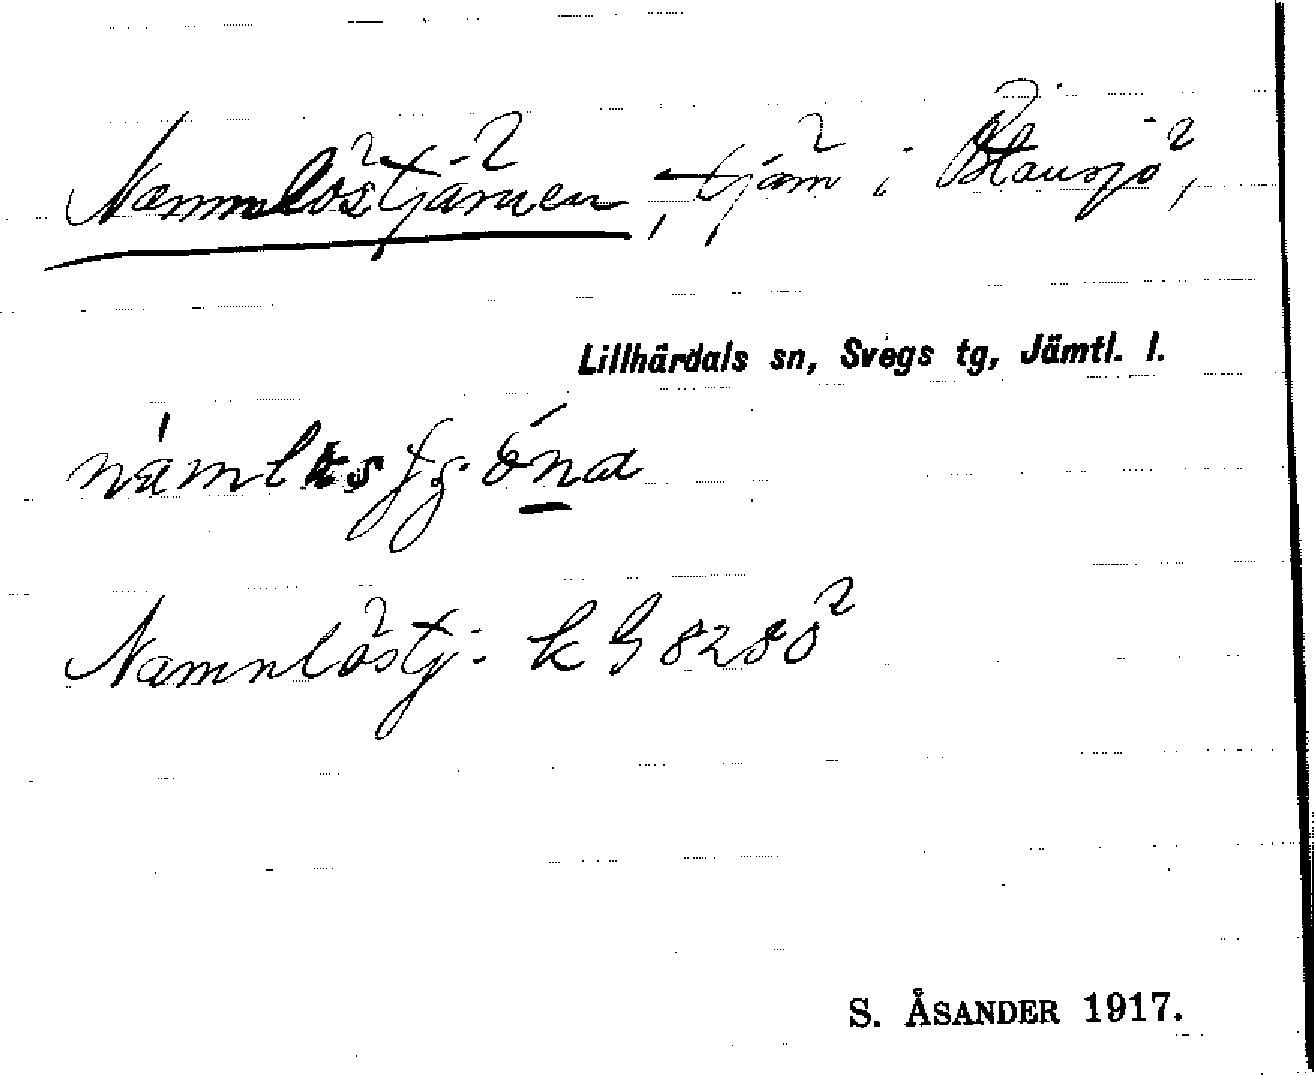 Namnlöstjärnen, tjärn i Östansjö,
Lillhärdals sn, Svegs tg, Jämtl. l.
Namnlöstj: k G 8280
S. ÅSANDER 1917.